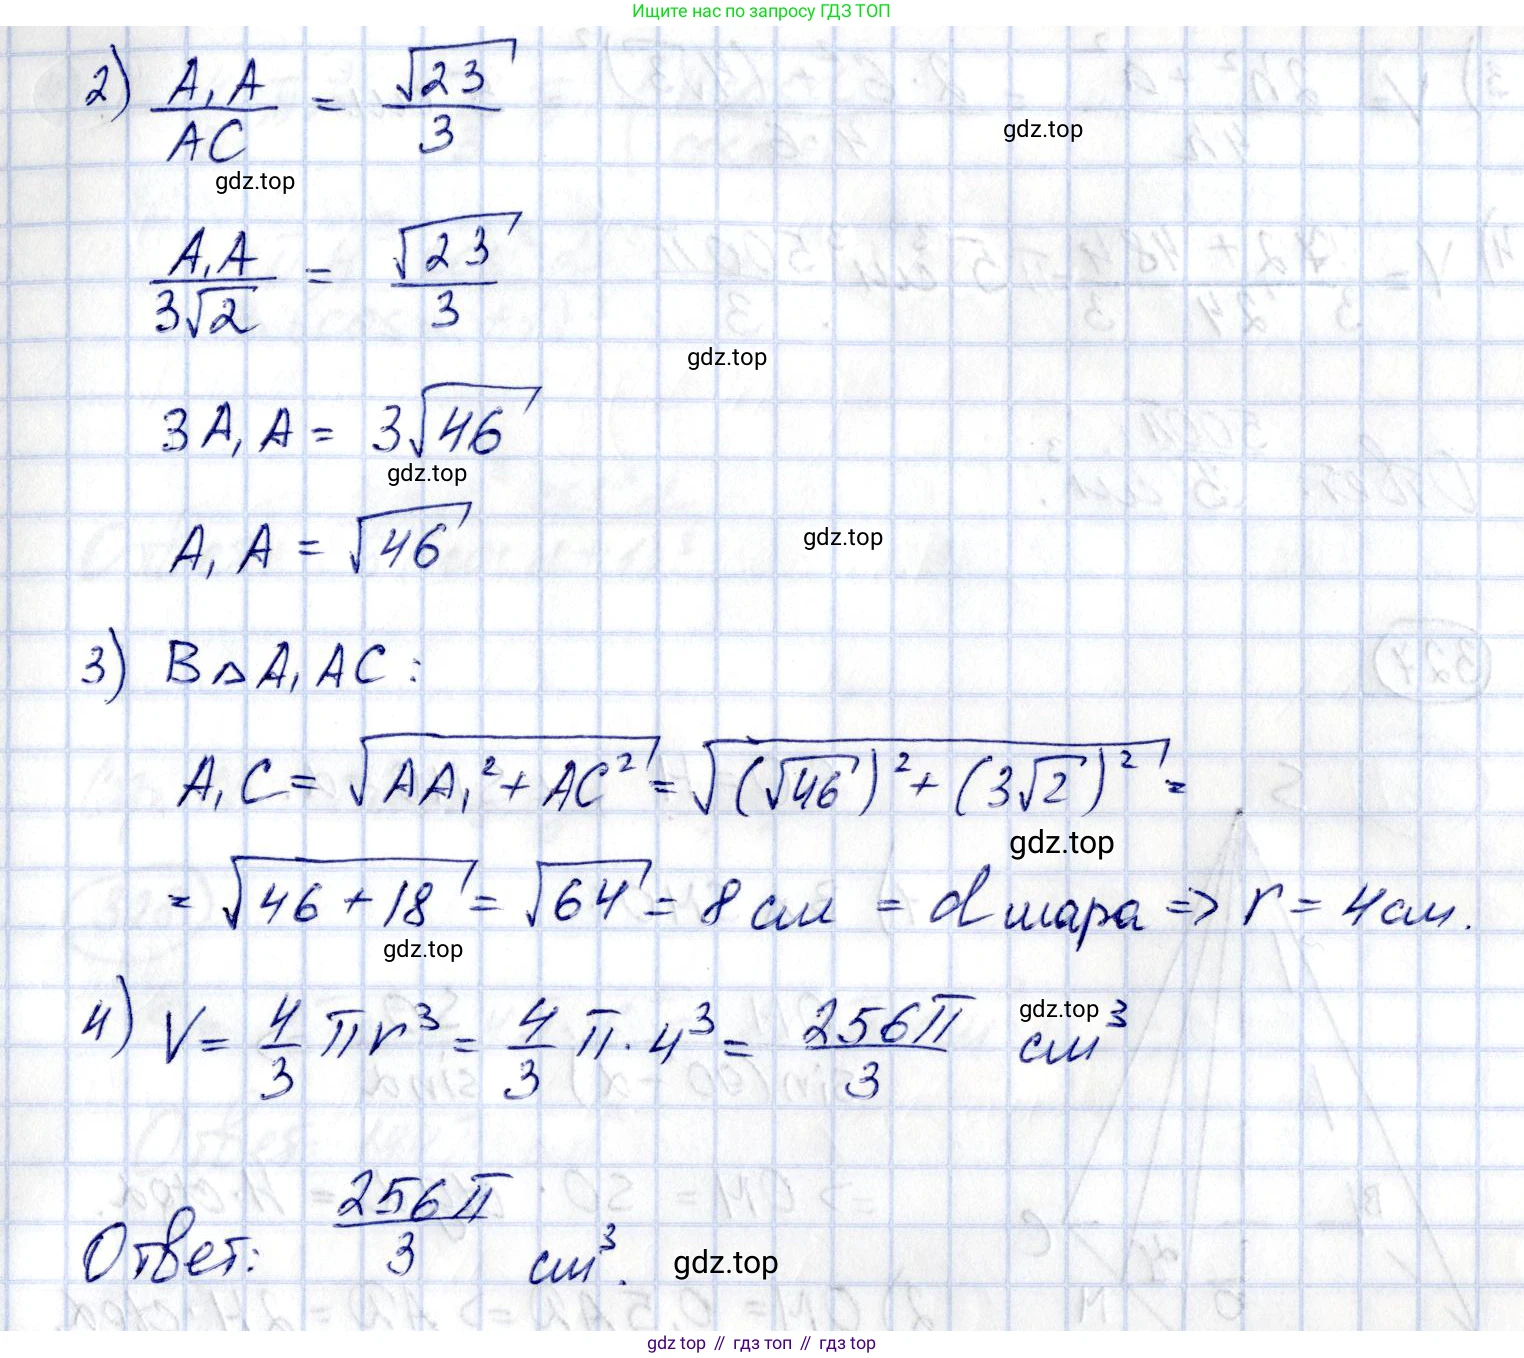 Ищите нас по запросу ГДЗ ТОП
2) A₁A/AC = √23/3
gdz.top
gdz.top
A₁A/3√2 = √23/3
gdz.top
3A₁A = 3√46
gdz.top
A₁A = √46
gdz.top
3) В △A₁AC:
A₁C = √(AA₁² + AC²) = √((√46)² + (3√2)²) =
gdz.top
= √(46 + 18) = √64 = 8 см = d шара => r = 4 см.
gdz.top
4) V = 4/3 πr³ = 4/3 π · 4³ = 256π/3 см³
gdz.top
Ответ: 256π/3 см³.
gdz.top
gdz top // гдз топ // гдз top